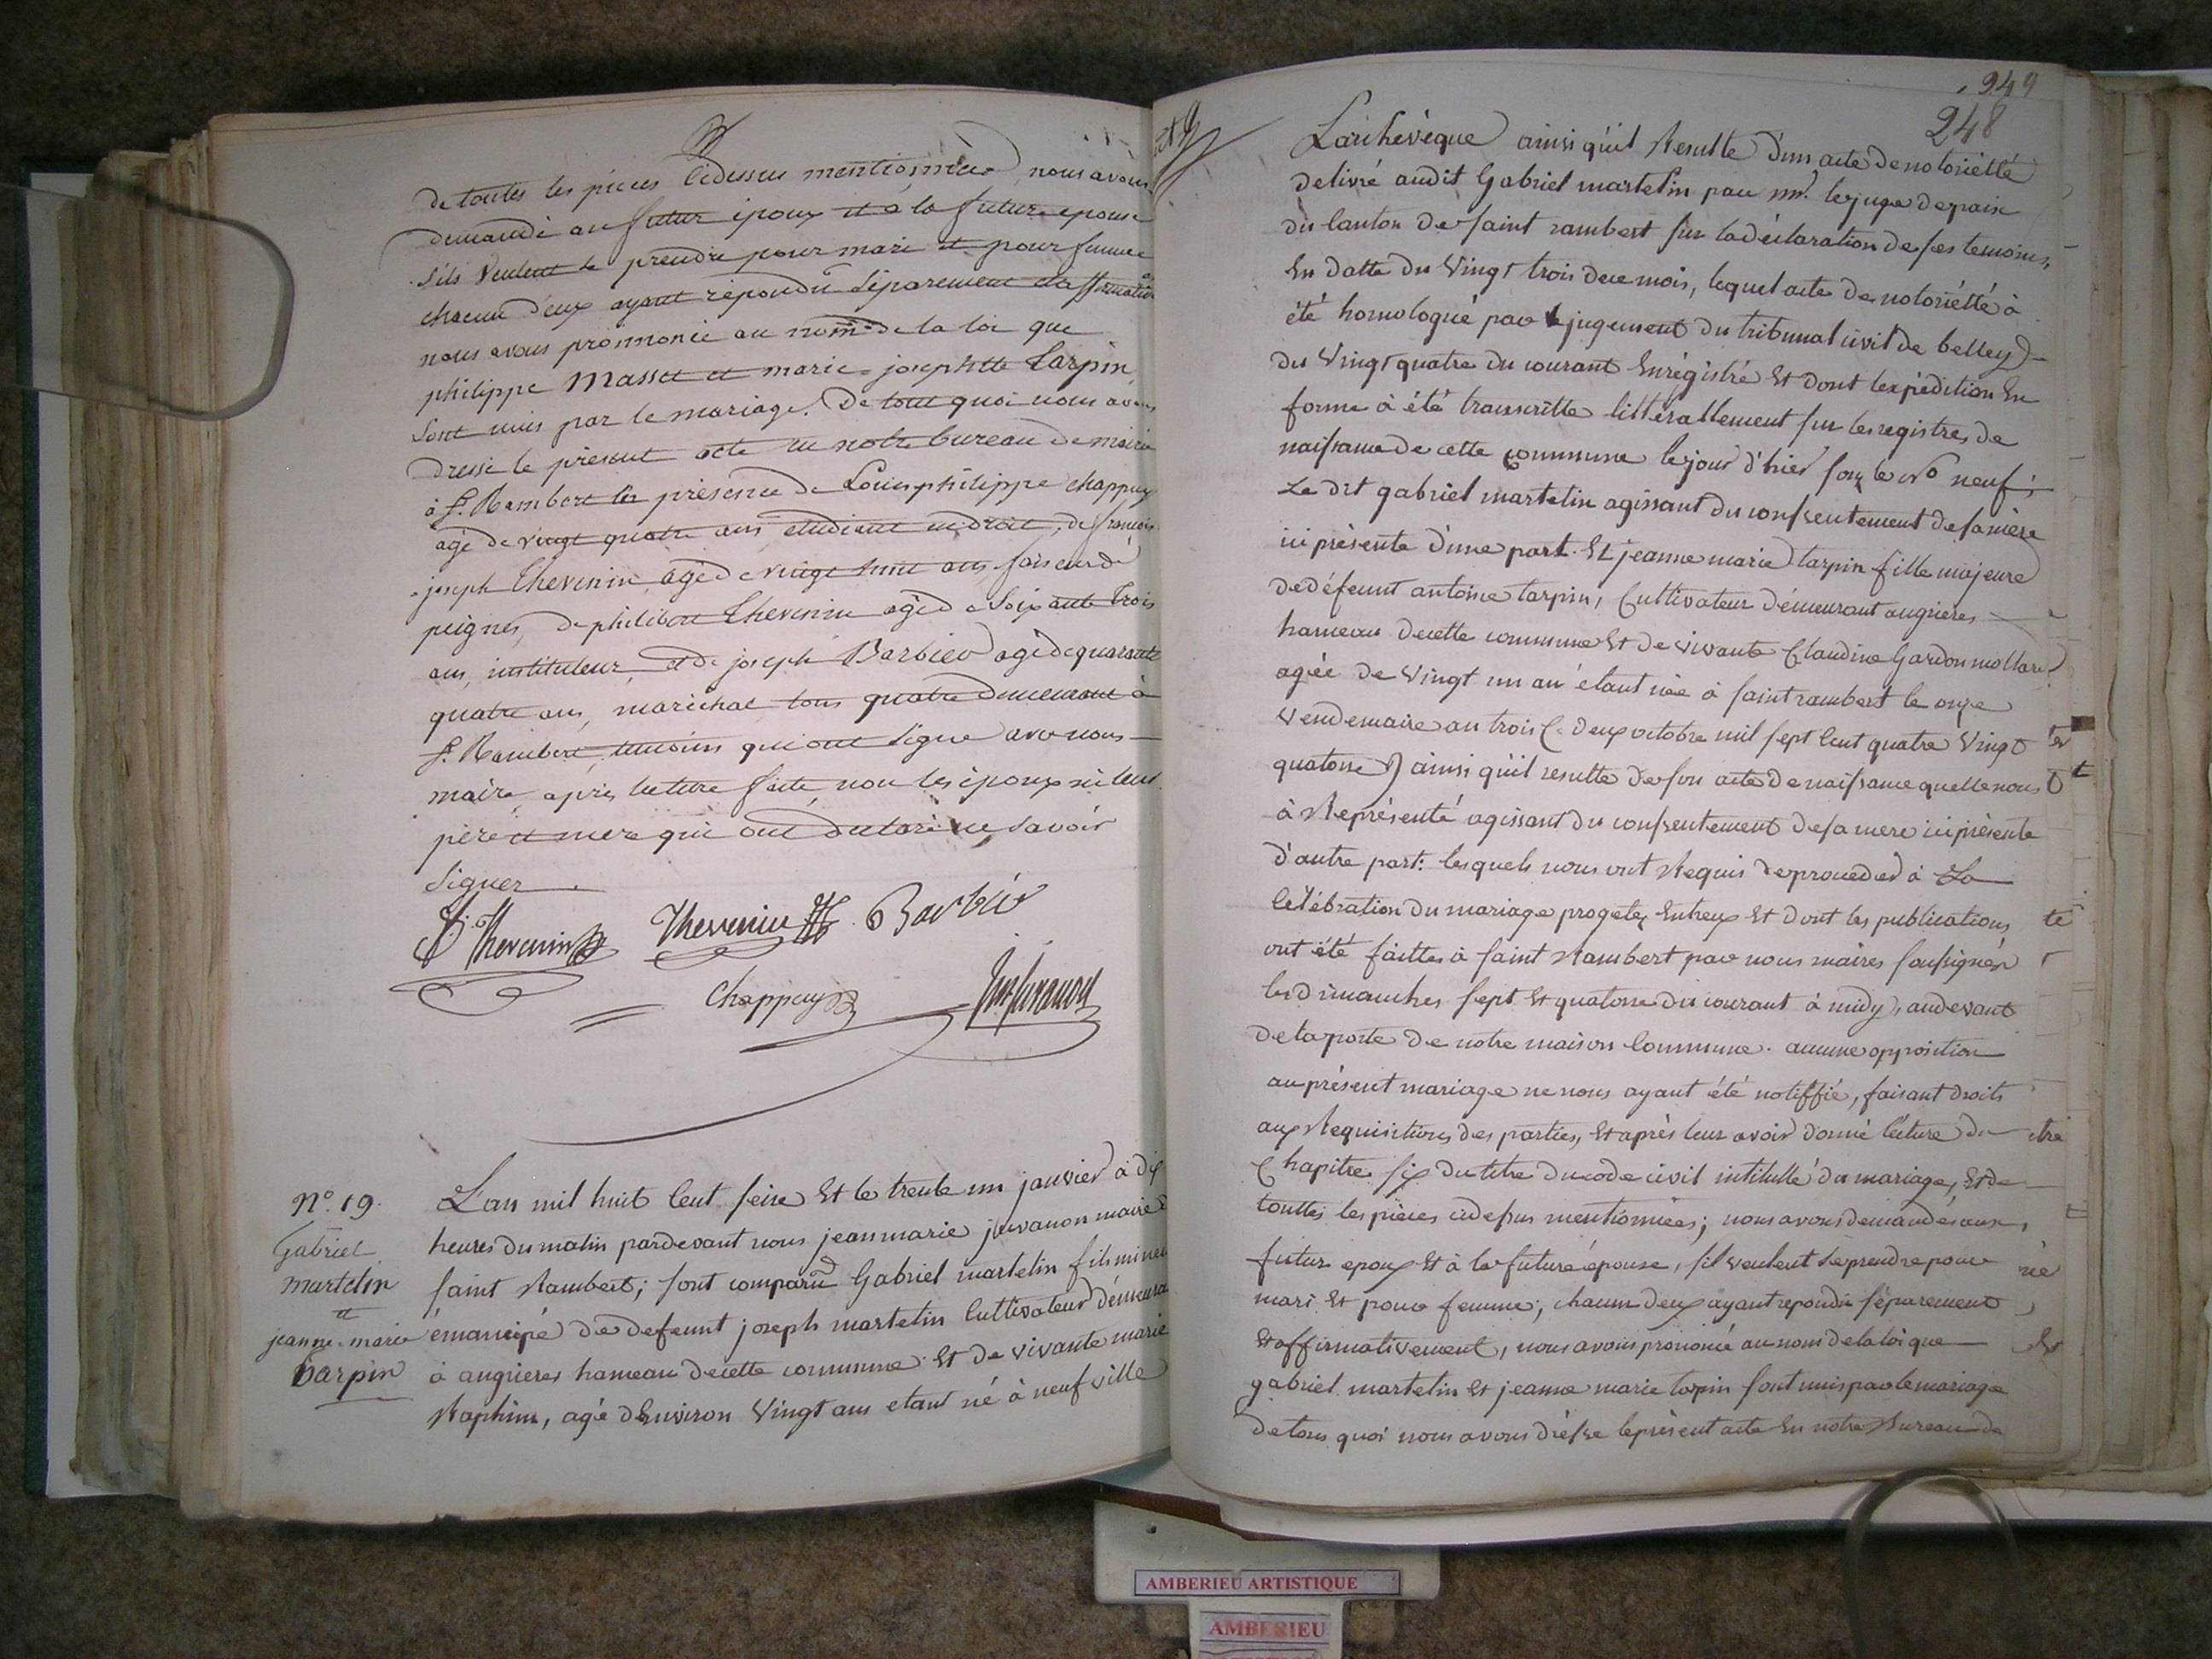 de toutes les pieces cidessus mentionnées, nous avons
demandé au futur époux et à la future epouse
s'ils veulent se prendre pour mari et pour femme
chacun d'eux ayant répondu séparement et affirmativ
nous avons prononcé au nom de la loi que
philippe Masset et marie-josephtte Tarpin
sont unis par le mariage. De tout quoi nous avons
dressé le présent acte en notre bureau de mairie
à St. Rambert en présence de Louis philippe chappuy
agé de vingt quatre ans étudiant en droit, de francois
joseph Thevenin agé de vingt huit ans faiseur de
peignes, de philibert Thevenin agé de soixante trois
ans, instituteur, et de joseph Barbier agé de quarante
quatre ans, maréchal tous quatre demeurant à
St. Rambert, temoins qui ont signé avec nous
maire, après lecture faite, non les époux ni leur
père et mere qui ont declaré ne savoir
signer.
Thevenin Thevenin Barbier
Chappuy
N°. 19.
Gabriel
martelin
et
jeanne-marie
tarpin
L'an mil huit cent seize Et le trente un janvier à dix
heures du matin pardevant nous jean marie juvanon maire d
saint Rambert; sont comparu Gabriel martelin fils mineu
émancipé de defeunt joseph martelin Cultivateur démeura
à angrieres hameau decette commune Et de vivante marie
Raphin, agé d'Environ Vingt ans etant né à neufville
249
248
L'archevèque ainsi qu'il Resulte d'un acte de notoriétté
delivré audit Gabriel martelin par mr. le juge de paix
du Canton de saint rambert sur la déclaration de ses temoins,
En datte du Vingt trois de ce mois, lequel acte de notoriétté à
été homologué par jugement du tribunal civil de belley
du Vingt quatre du courant Enrégistré Et dont l'expédition En
forme à été transcritte littérallement sur les registres de
naissance de cette commune le jour d'hier sous le No neuf;
Le dit gabriel martelin agissant du consentement de sa mère
ici présente d'une part. Et jeanne marie tarpin fille majeure
de défeunt antoine tarpin, Cultivateur démeurant angrieres
hameau decette commune Et de vivante Claudine Gardon mollard
agée de Vingt un an étant née à saint rambert le onze
Vendemaire an trois (deux octobre mil sept Cent quatre Vingt
quatorse) ainsi qu'il resulte de son acte de naissance quelle nous
à Représenté agissant du consentement de sa mere ici présente
d'autre part: lesquels nous ont Requis de proceder à La
Célébration du mariage progeté Entreux Et dont les publications
ont été faittes à saint Rambert par nous maires soussignés
les dimanches sept Et quatorse du courant à midy, audevant
de la porte de notre maison Commune. aucune opposition
au présent mariage ne nous ayant été notiffié, faisant droits
aux Requisitions des parties, Et après leur avoir donné lecture du
Chapitre six du titre du code civil intitullé du mariage, Et de
touttes les pièces cidessus mentionnées; nous avons demandés aux
futur epoux Et à la future épouse, s'il veulent se prendre pour
mari Et pour femme; chacun deux ayant repondu séparement
Et affirmativement, nous avons prononcé au nom de la loi que
gabriel martelin Et jeanne marie tarpin sont unis par le mariage
de tous quoi nous avons dréssé le présent acte En notre Bureau de
AMBERIEU ARTISTIQUE
AMBERIEU